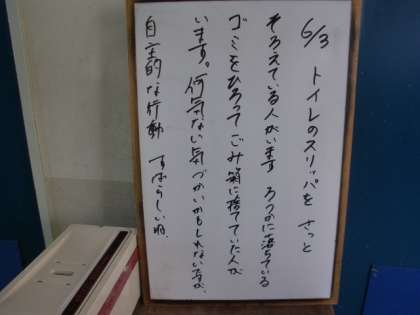 6/3 トイレのスリッパを さっと
そろえている人がいます ろうかに落ちている
ゴミをひろって ごみ箱に捨てていた人が
います。何気ない気づかいかもしれないが、
自主的な行動 すばらしいね。